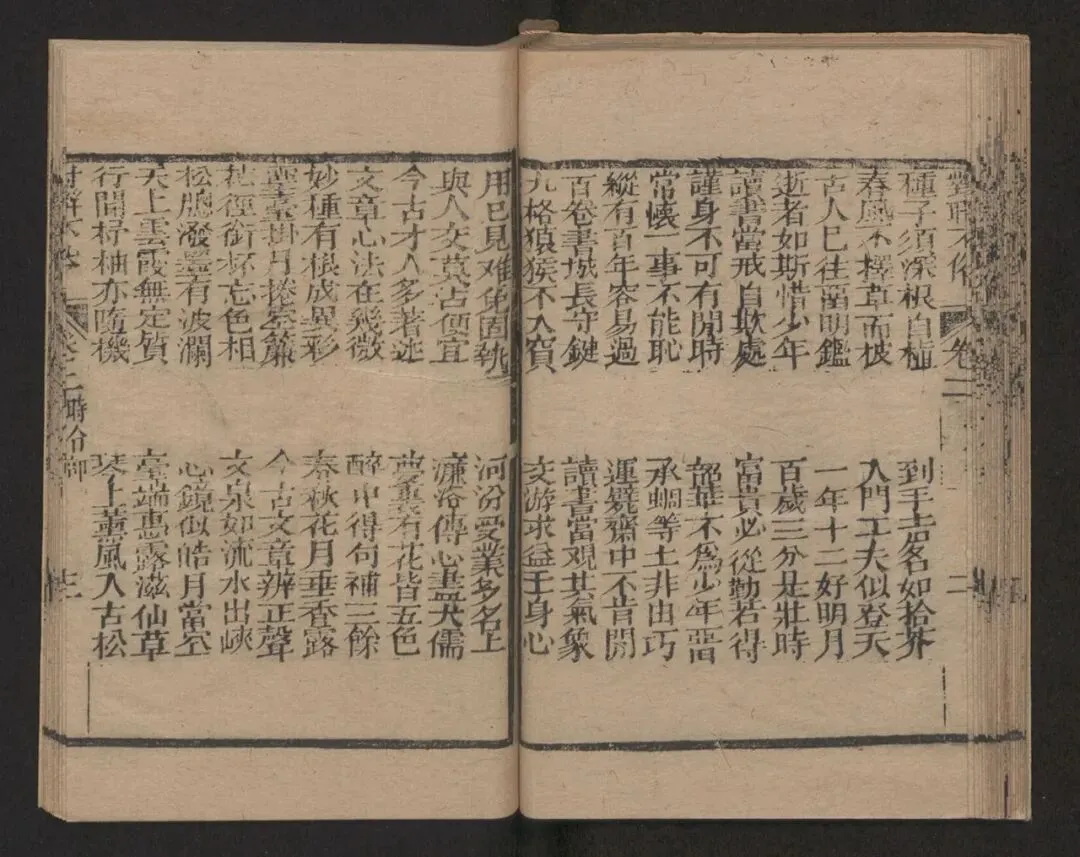 對聯不俗 卷二 二
種子須深根自植 到手名如拾芥
春風不擇草而披 入門工夫似登天
古人已往留明鑑 一年十二好明月
逝者如斯惜少年 百歲三分是壯時
讀書當戒自欺處 富貴必從勤若得
謹身不可有閒時 韶華不為少年留
常懷一事不能恥 承蜩等土非由巧
縱有百年容易過 運甓齋中不肯閒
百卷書城長守鍵 讀書當觀其氣象
九格猿猴不入 交游求益王身心
用巳見难免固執 河汾受業多名上
與人交莫占便宜 濂洛傳心盡大儒
今古才人多著述 有花皆五色
文章心法在幾微 醉中得句補三餘
妙種有根成異彩 春秋花月垂香露
靈臺掛月捲空簾 今古文章辨正聲
花徑銜杯忘色相 文泉如流水出峽
松牕潑墨有波瀾 心鏡似皓月當空
天上雲霞無定質 臺端惠露滋仙草
行間杼柚亦隨機 琴上薰風入古松
卷二 時令部